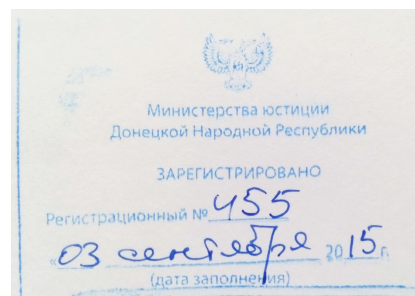 Министерства юстиции
Донецкой Народной Республики
ЗАРЕГИСТРИРОВАНО
Регистрационный № 455
«03 сентября 2015 г.
(дата заполнения)